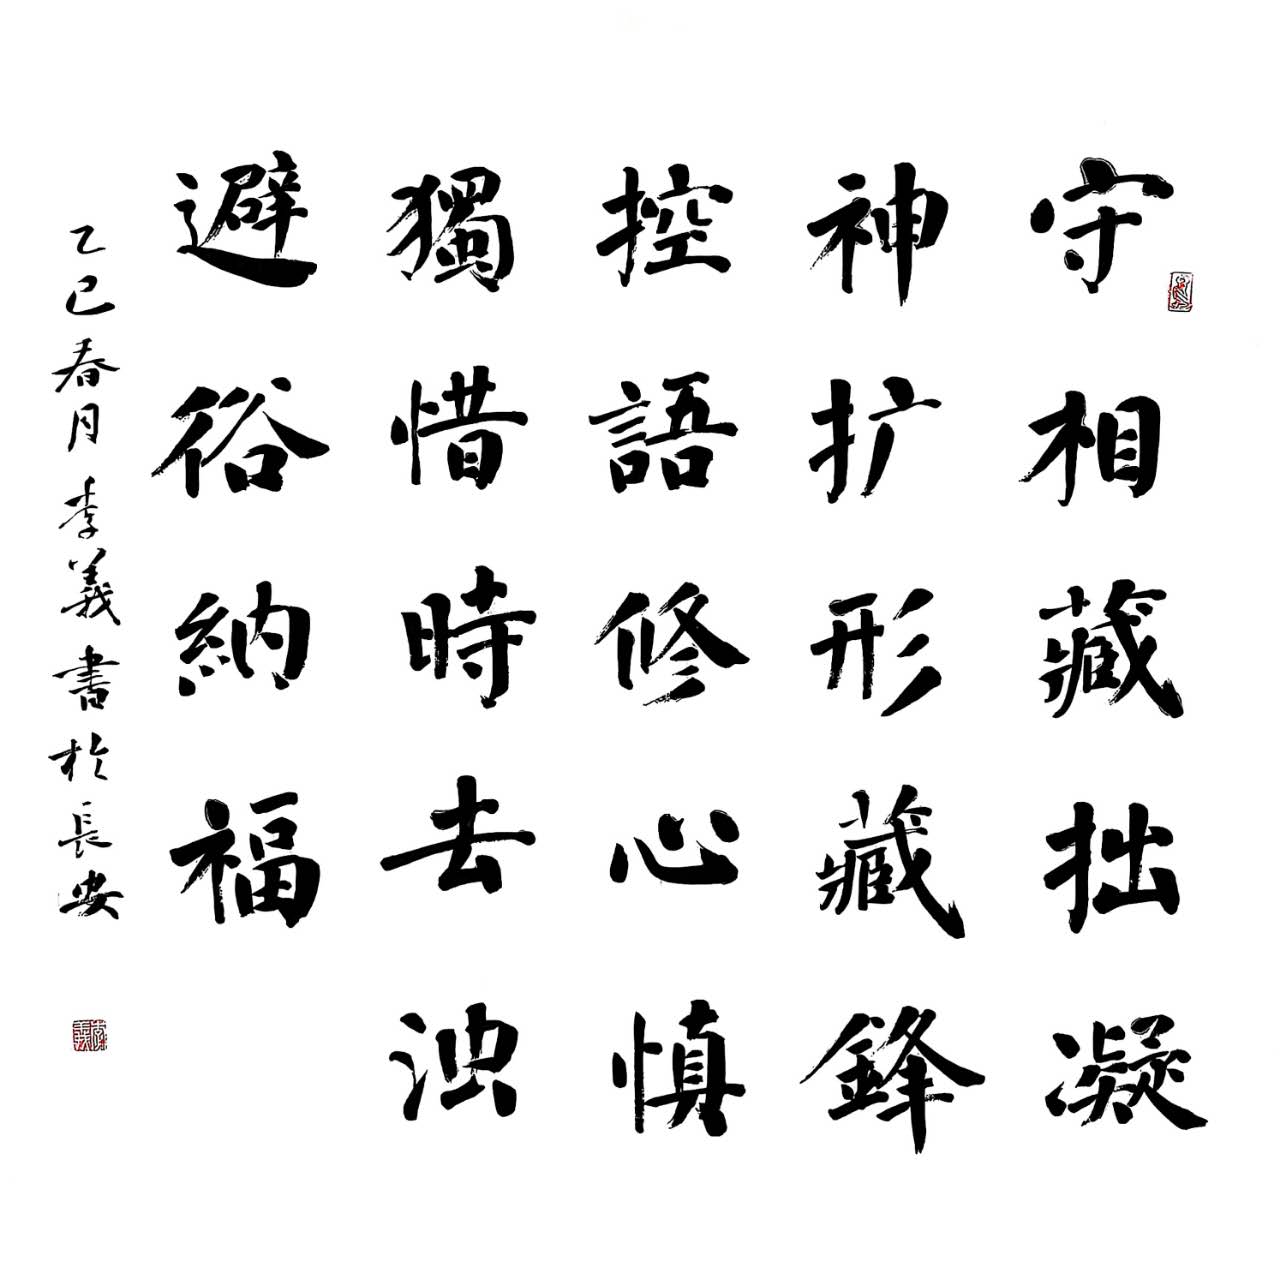 守相藏拙凝
神扩形藏鋒
控語修心慎
獨惜時去浊
避俗納福
乙巳春月李義書於長安
李義